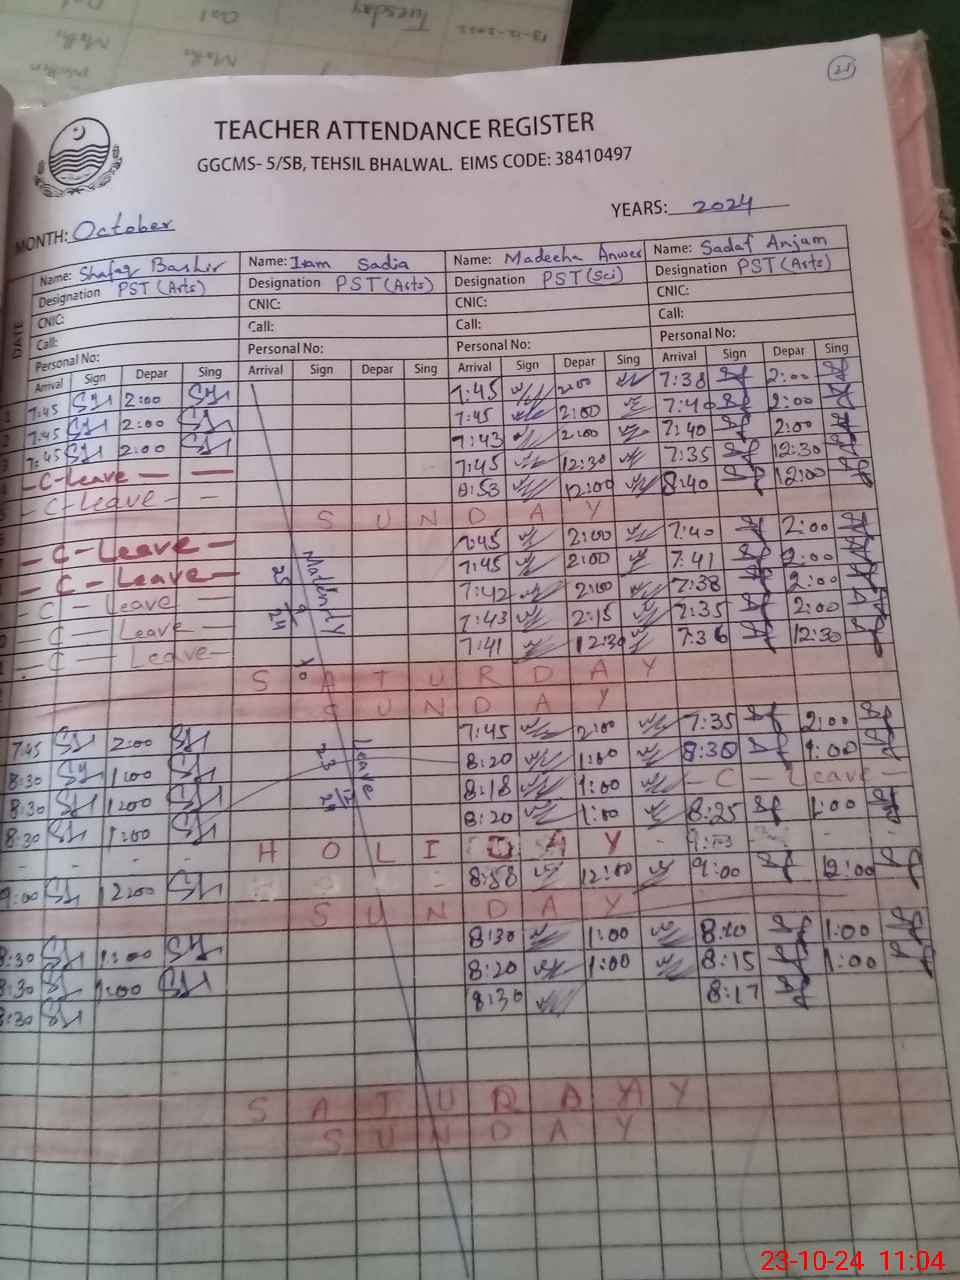 13-12-2022 Tuesday Oct
Maths Maths
21
TEACHER ATTENDANCE REGISTER
GGCMS- 5/SB, TEHSIL BHALWAL. EIMS CODE: 38410497
MONTH: October YEARS: 2024
DATE
Name: Shafaq Bashir Name: Iram Sadia Name: Madeeha Anwer Name: Sadaf Anjum
Designation PST (Arts) Designation PST (Arts) Designation PST (Sci) Designation PST (Arts)
CNIC: CNIC: CNIC: CNIC:
Call: Call: Call: Call:
Personal No: Personal No: Personal No: Personal No:
Arrival Sign Depar Sing Arrival Sign Depar Sing Arrival Sign Depar Sing Arrival Sign Depar Sing
1 7:45 2:00 7:45 2:00 7:38 2:00
2 7:45 2:00 7:45 2:00 7:40 2:00
3 7:45 2:00 7:43 2:00 7:40 2:00
- C-Leave - - 7:45 12:30 7:35 12:30
- C-Leave - - 8:53 12:00 8:40 12:00
SUNDAY
- C-Leave - 7:45 2:00 7:40 2:00
- C-Leave - 7:45 2:00 7:41 2:00
- C - Leave - 7:42 2:00 7:38 2:00
- C - Leave - 7:43 2:15 7:35 2:00
- C - Leave - 7:41 12:30 7:36 12:30
Maternity
25 9 24
to
SATURDAY
SUNDAY
7:45 2:00 7:45 2:00 7:35 2:00
8:30 1:00 8:20 1:00 8:30 1:00
8:30 1:00 8:18 1:00 - C - Leave -
8:30 1:00 8:20 1:00 8:25 1:00
Leave
23 12 24
HOLIDAY
9:00 12:00 8:58 12:00 9:00 12:00
SUNDAY
8:30 1:00 8:30 1:00 8:20 1:00
8:30 1:00 8:20 1:00 8:15 1:00
8:30 8:30 8:17
SATURDAY
SUNDAY
23-10-24 11:04